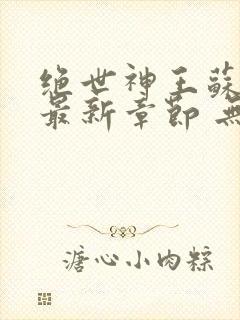 绝世神王蘇
最新章節 無
溏心小肉粽